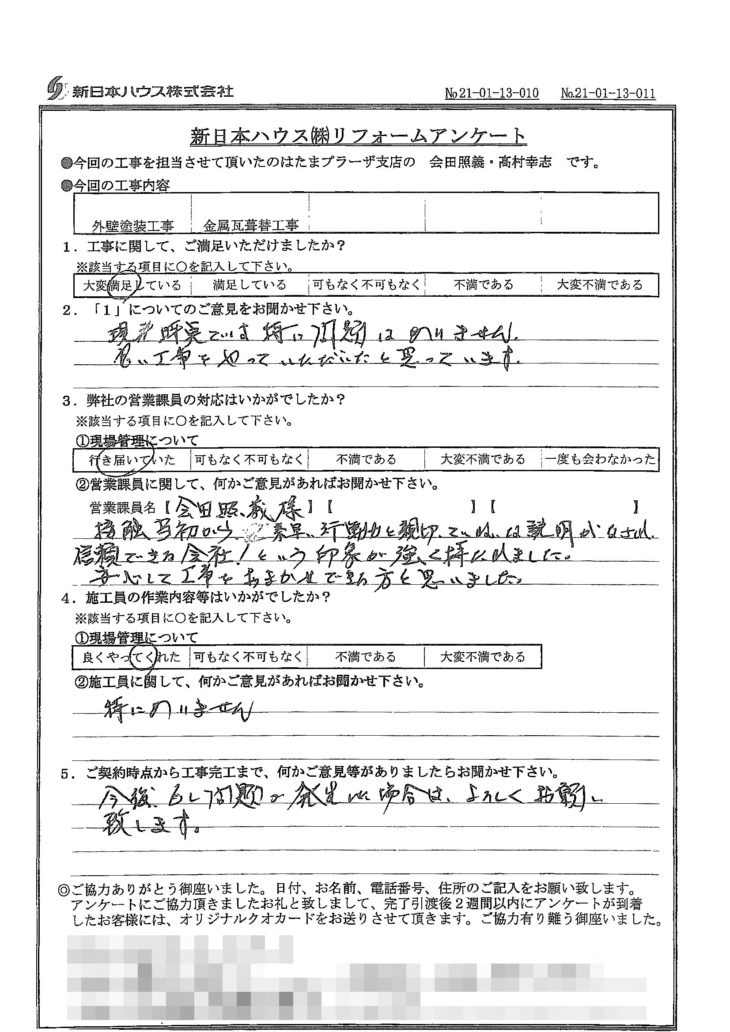 新日本ハウス株式会社 №21-01-13-010 №21-01-13-011
新日本ハウス㈱リフォームアンケート
●今回の工事を担当させて頂いたのはたまプラーザ支店の 会田照義・高村幸志 です。
●今回の工事内容
外壁塗装工事 金属瓦葺替工事
1．工事に関して、ご満足いただけましたか？
※該当する項目に〇を記入して下さい。
大変満足している 満足している 可もなく不可もなく 不満である 大変不満である
2．「1」についてのご意見をお聞かせ下さい。
現在時点では特に問題はありません。
良い工事をやっていただいたと思っています。
3．弊社の営業課員の対応はいかがでしたか？
※該当する項目に〇を記入して下さい。
①現場管理について
行き届いていた 可もなく不可もなく 不満である 大変不満である 一度も会わなかった
②営業課員に関して、何かご意見があればお聞かせ下さい。
営業課員名【会田照義様】【 】【 】
接触当初から 素早い行動力と親切、ていねいな説明がなされ、
信頼できる会社！という印象が強く持たれました。
安心して工事をおまかせできる方と思いました。
4．施工員の作業内容等はいかがでしたか？
※該当する項目に〇を記入して下さい。
①現場管理について
良くやってくれた 可もなく不可もなく 不満である 大変不満である
②施工員に関して、何かご意見があればお聞かせ下さい。
特にありません
5．ご契約時点から工事完工まで、何かご意見等がありましたらお聞かせ下さい。
今後、もし問題が発生した場合は、よろしくお願い
致します。
◎ご協力ありがとう御座いました。日付、お名前、電話番号、住所のご記入をお願い致します。
アンケートにご協力頂きましたお礼と致しまして、完了引渡後2週間以内にアンケートが到着
したお客様には、オリジナルクオカードをお送りさせて頂きます。ご協力有り難う御座いました。